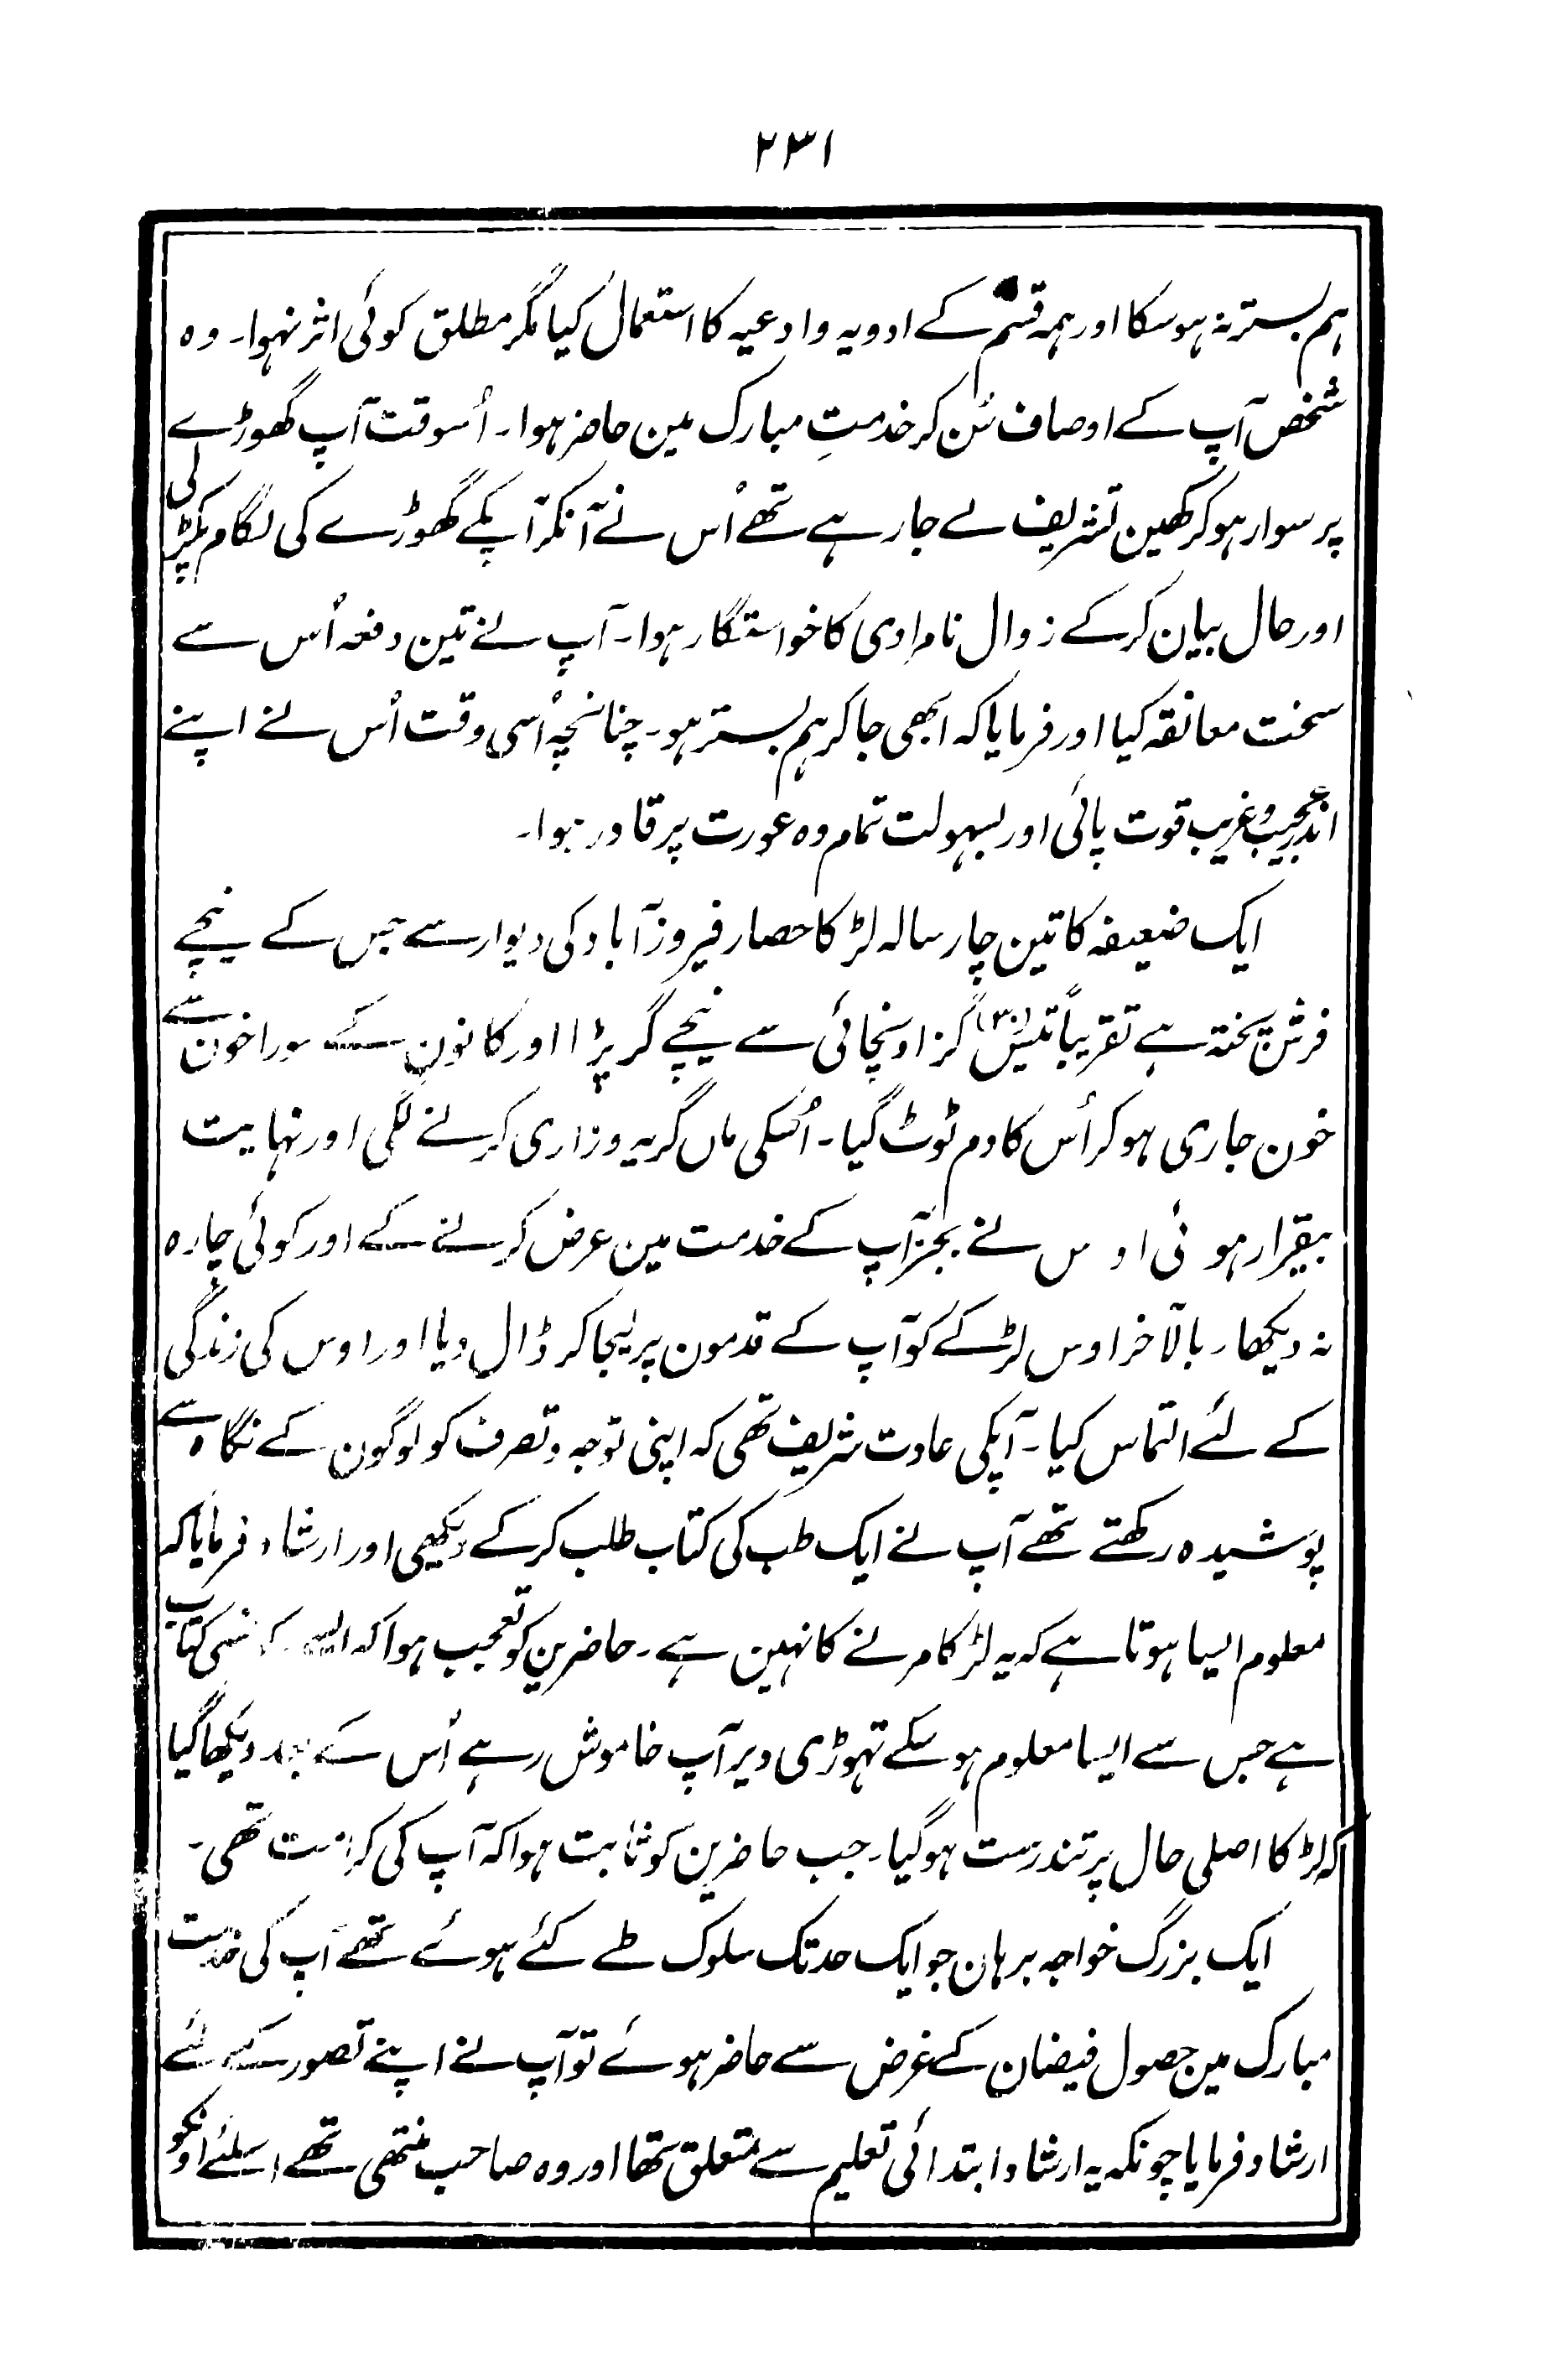 ۲۳۱
ہم بستر نہ ہوسکا اور ہمہ قسم کے ادویہ و ادعیہ کا استعمال کیا مگر مطلق کوئی اثر نہوا۔ وہ
شخص آپ کے اوصاف سُن کر خدمتِ مبارک مین حاضر ہوا۔ اُسوقت آپ گھوڑے
پر سوار ہوکر کھین تشریف لے جارہے تھے اُس نے آنکر آپکے گھوڑے کی لگام پکڑ لی
اور حال بیان کرکے زوال نامرادی کا خواستگار ہوا۔ آپ نے تین دفعہ اُس سے
سخت معانقہ کیا اور فرمایا کہ ابھی جاکر ہم بستر ہو۔ چنانچہ اُسی وقت اُس نے اپنے
اندر عجیب و غریب قوت پائی اور بسہولت تمام وہ عورت پر قادر ہوا۔
ایک ضعیفہ کا تین چار سالہ لڑکا حصار فیروزآباد کی دیوار سے جس کے نیچے
فرش پختہ ہے تقریباً تیس (۳۰) گز اونچائی سے نیچے گر پڑا اور کانون کے سوراخون سے
خون جاری ہوکر اُس کا دم ٹوٹ گیا۔ اُسکی ماں گریہ وزاری کرنے لگی اور نہایت
بیقرار ہوئی اوس نے بجز آپ کے خدمت مین عرض کرنے کے اور کوئی چارہ
نہ دیکھا۔ بالآخر اوس لڑکے کو آپ کے قدمون پر لیجا کر ڈال دیا اور اوس کی زندگی
کے لئے التماس کیا۔ آپکی عادت شریف تھی کہ اپنی توجہ و تصرف کو لوگون کے نگاہ سے
پوشیدہ رکھتے تھے آپ نے ایک طب کی کتاب طلب کرکے دیکھی اور ارشاد فرمایا کہ
معلوم ایسا ہوتا ہے کہ یہ لڑکا مرنے کا نہین ہے۔ حاضرین کو تعجب ہوا کہ ایسی کونسی کتاب
ہے جس سے ایسا معلوم ہوسکے تہوڑی دیر آپ خاموش رہے اُس کے بعد دیکھا گیا
کہ لڑکا اصلی حال پر تندرست ہوگیا۔ جب حاضرین کو ثابت ہوا کہ آپ کی کرامت تھی۔
ایک بزرگ خواجہ برہان جو ایک حد تک سلوک طے کئے ہوئے تھے آپ کی خدمت
مبارک مین حصول فیضان کے غرض سے حاضر ہوئے تو آپ نے اپنے تصور کے لئے
ارشاد فرمایا چونکہ یہ ارشاد ابتدائی تعلیم سے متعلق تھا اور وہ صاحب منتھی تھے اسلئے اونکو